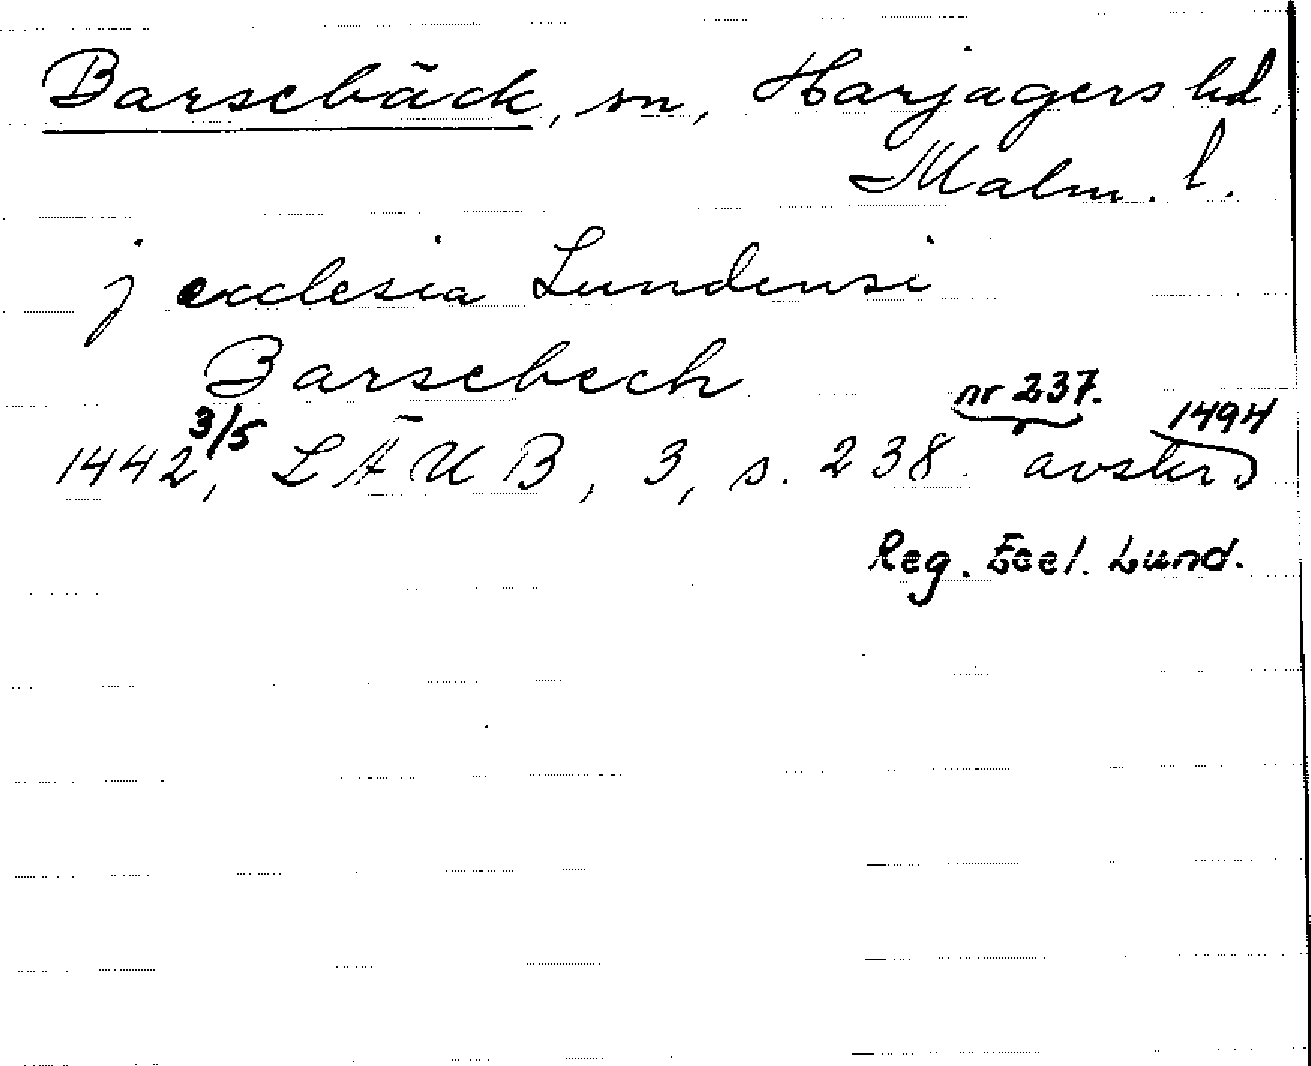 Barsebäck, sn, Harjagers hd,
Malm. l.
j ecclesia Lundensi
Barsebech
nr 237.
1494
1442 3/5, LÄUB, 3, s. 238. avskr.
Reg. Eccl. Lund.